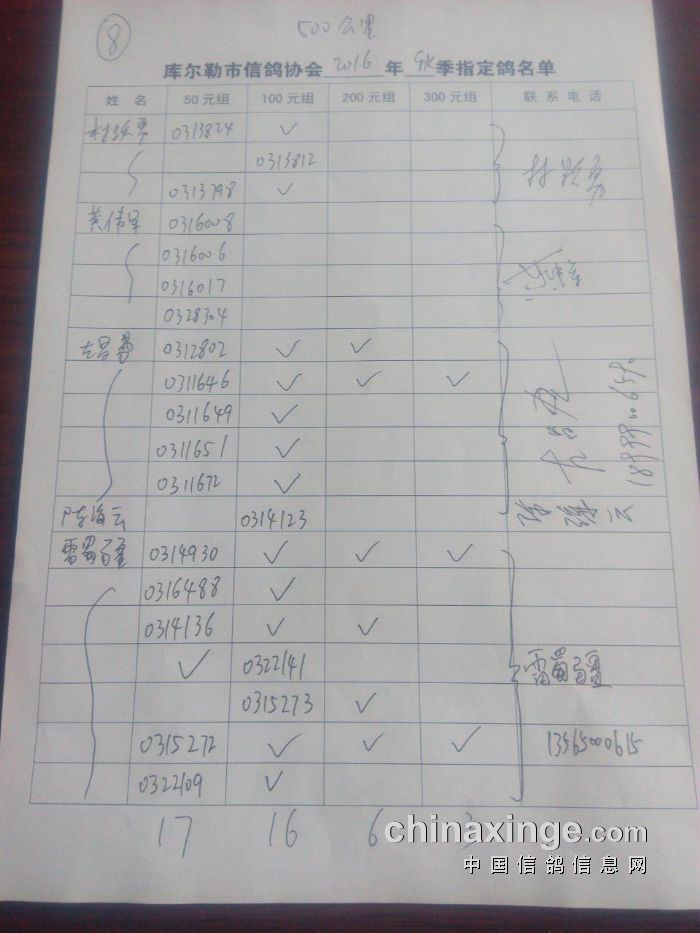 ⑧ 500公里
库尔勒市信鸽协会 2016 年 秋 季指定鸽名单
姓 名 50元组 100元组 200元组 300元组 联系电话
0313824 ✓
0313812
0313798 ✓
黄伟军 0316008
0316006
0316017
0328304
0312802 ✓ ✓
0311646 ✓ ✓ ✓
0311649 ✓
0311651 ✓
0311672 ✓
陈海云 0314123
雷蜀疆 0314930 ✓ ✓ ✓
0316488 ✓
0314136 ✓ ✓
✓ 0322141 雷蜀疆
0315273 ✓
0315272 ✓ ✓ ✓ 13565000615
0322109 ✓
17 16 6 3
chinaxinge.com
中国信鸽信息网